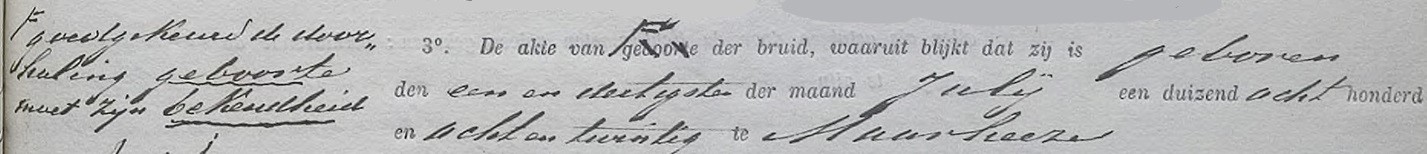 F goedgekeurd de door„
haling geboorte
moet zijn bekendheid
3°. De akte van F geboorte der bruid, waaruit blijkt dat zij is geboren
den een en dertigsten der maand Julij een duizend acht honderd
en acht en twintig te Maarheeze